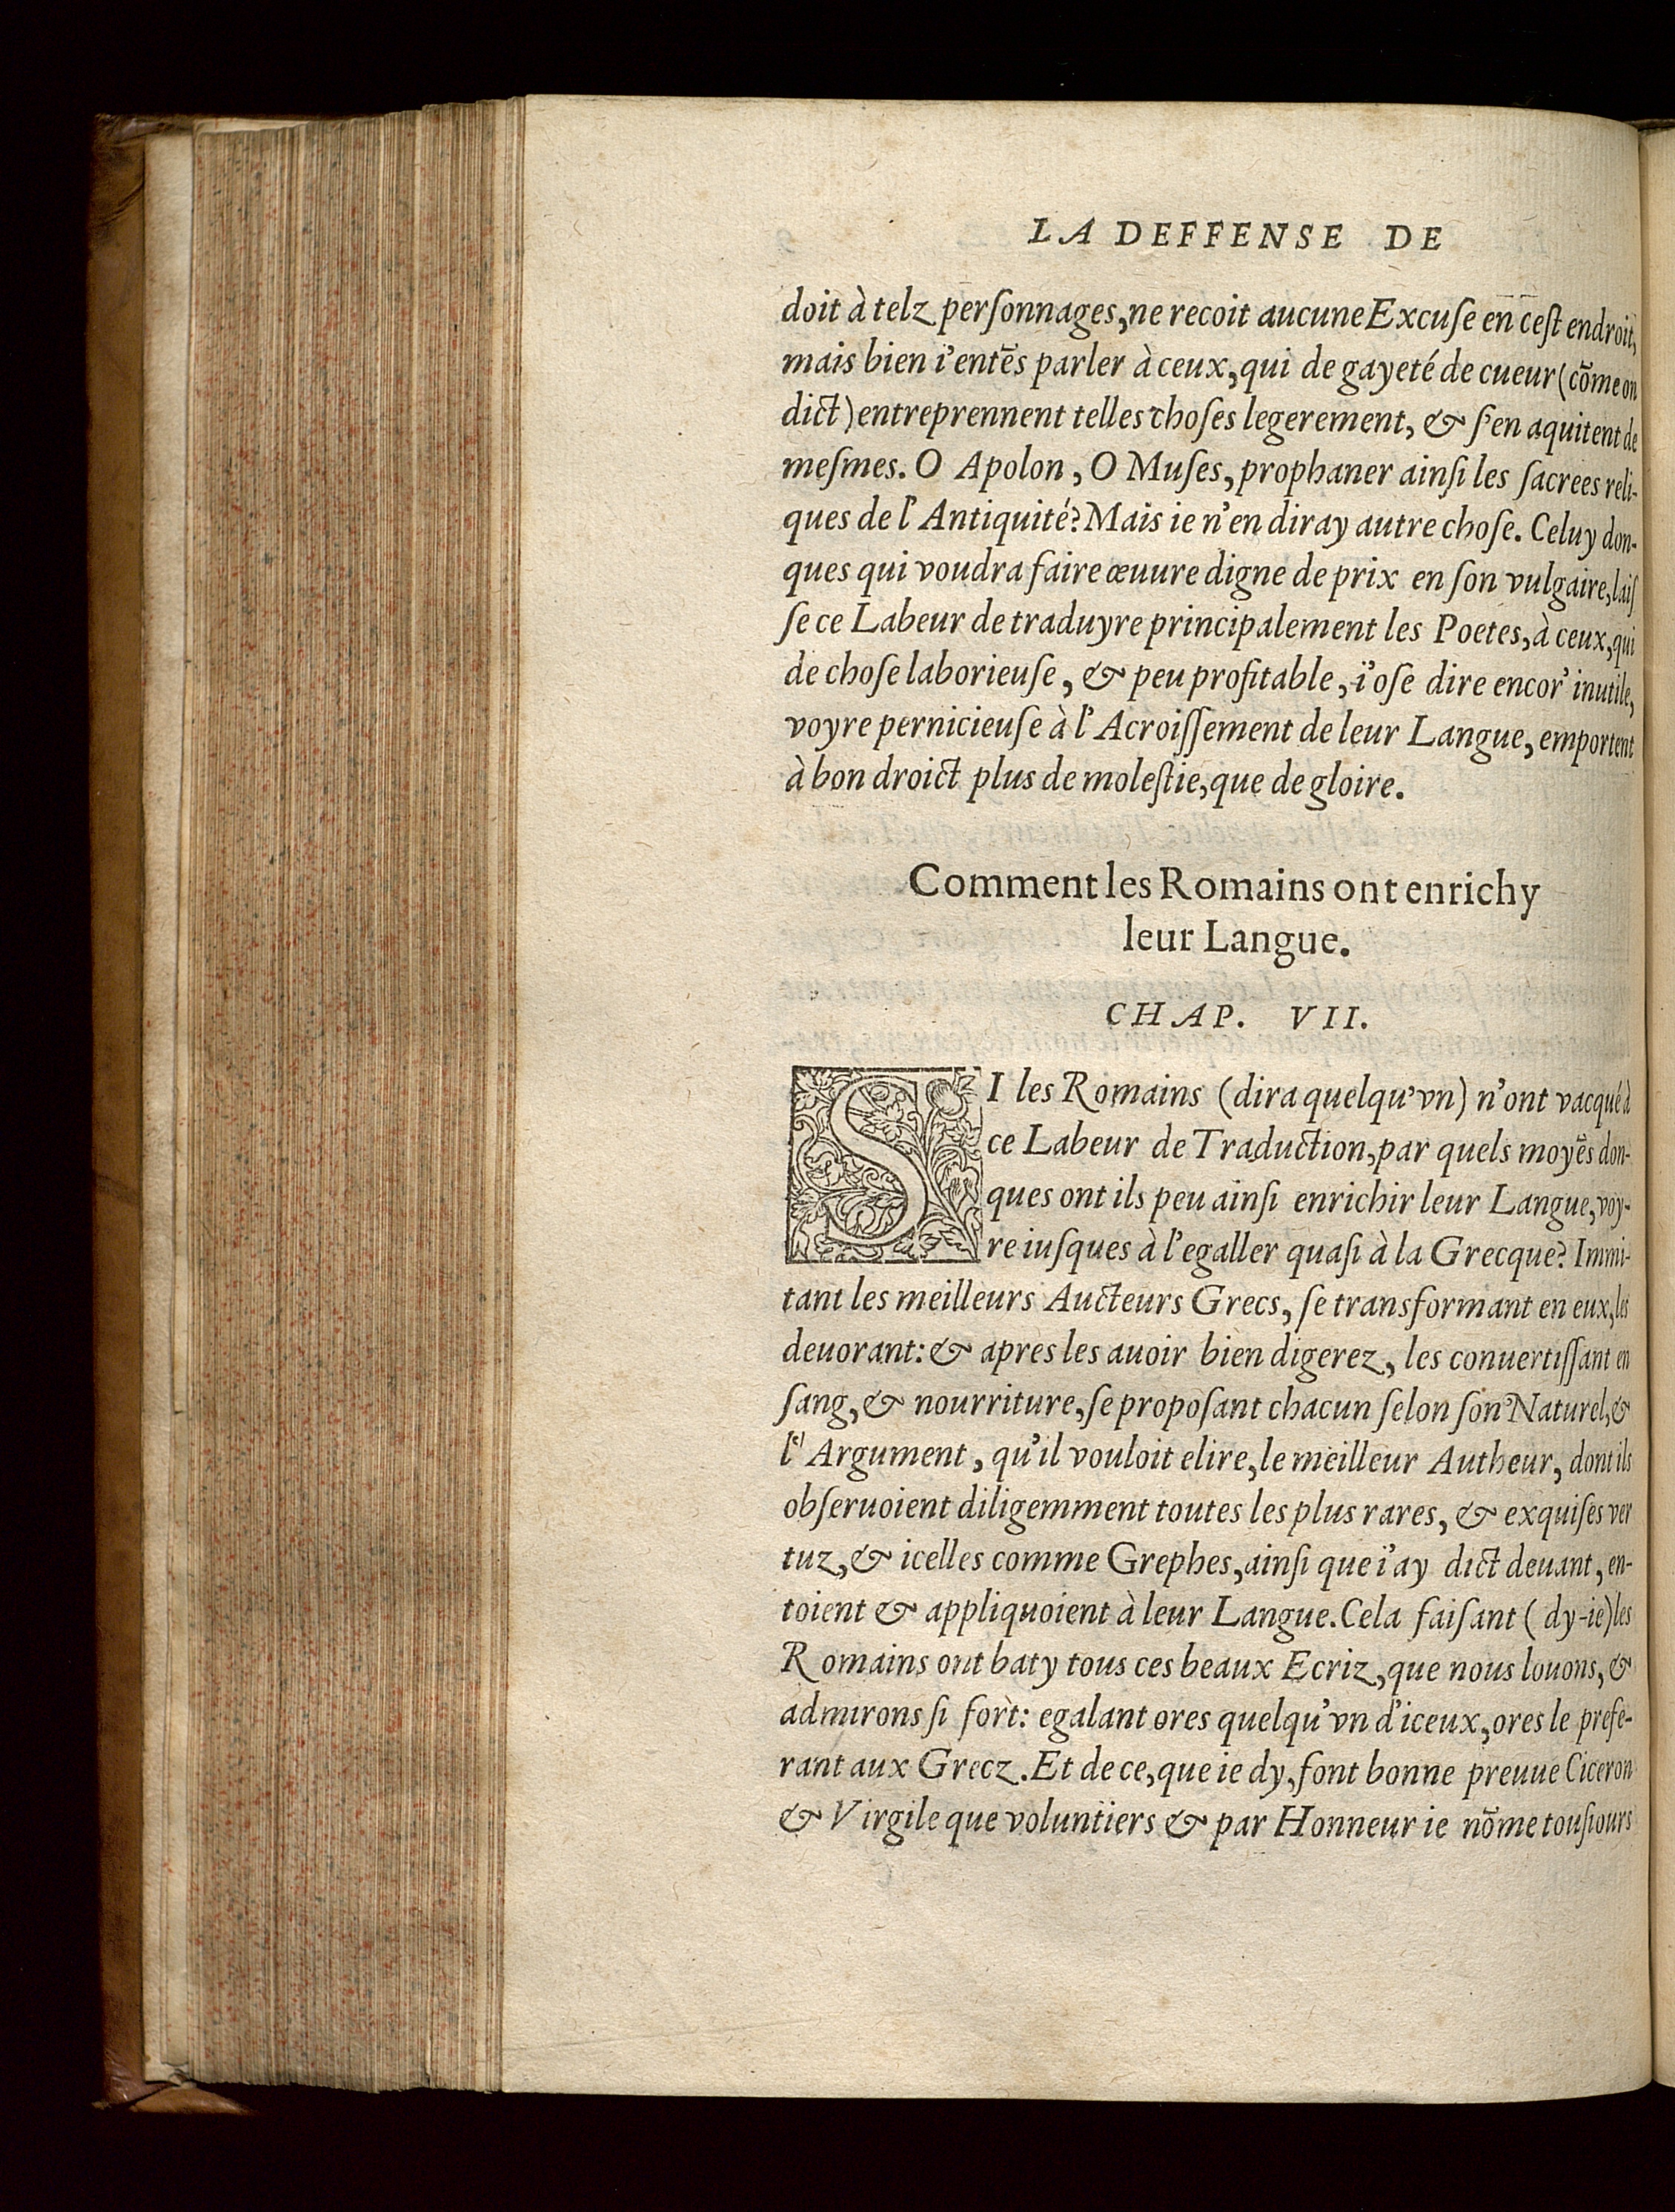 LA DEFFENSE DE
doit à telz perſonnages, ne recoit aucune Excuſe en ceſt endroit,
mais bien i'entẽs parler à ceux, qui de gayeté de cueur (cõme on
dict) entreprennent telles choſes legerement, & ſ'en aquitent de
meſmes. O Apolon, O Muſes, prophaner ainſi les ſacrees reli-
ques de l'Antiquité? Mais ie n'en diray autre choſe. Celuy don-
ques qui voudra faire œuure digne de prix en ſon vulgaire, laiſ
ſe ce Labeur de traduyre principalement les Poetes, à ceux, qui
de choſe laborieuſe, & peu profitable, i'oſe dire encor' inutile,
voyre pernicieuſe à l'Acroiſſement de leur Langue, emportent
à bon droict plus de moleſtie, que de gloire.
Comment les Romains ont enrichy
leur Langue.
CHAP. VII.
SI les Romains (dira quelqu'vn) n'ont vacqué à
ce Labeur de Traduction, par quels moyẽs don-
ques ont ils peu ainſi enrichir leur Langue, voy-
re iuſques à l'egaller quaſi à la Grecque? Immi-
tant les meilleurs Aucteurs Grecs, ſe transformant en eux, les
deuorant: & apres les auoir bien digerez, les conuertiſſant en
ſang, & nourriture, ſe propoſant chacun ſelon ſon Naturel, &
l'Argument, qu'il vouloit elire, le meilleur Autheur, dont ils
obſeruoient diligemment toutes les plus rares, & exquiſes ver
tuz, & icelles comme Grephes, ainſi que i'ay dict deuant, en-
toient & appliquoient à leur Langue. Cela faiſant (dy-ie) les
Romains ont baty tous ces beaux Ecriz, que nous louons, &
admirons ſi fort: egalant ores quelqu'vn d'iceux, ores le prefe-
rant aux Grecz. Et de ce, que ie dy, font bonne preuue Ciceron
& Virgile que voluntiers & par Honneur ie nõme touſiours